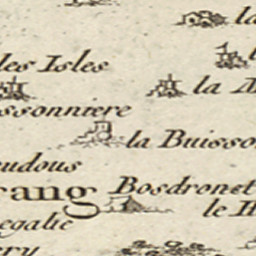 la
les Isles
la
ssonniere
la Buisso
eudous
rang
Bosdronet
le H
egalie
ery